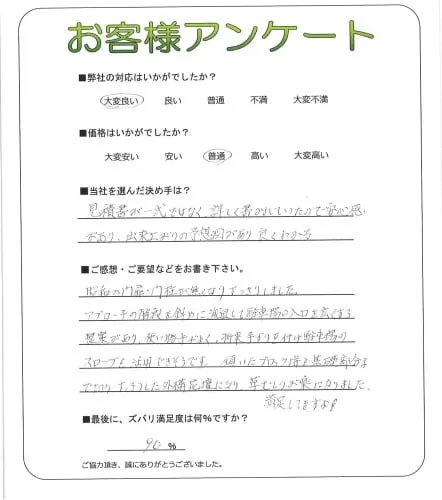 お客様アンケート
■弊社の対応はいかがでしたか？
大変良い 良い 普通 不満 大変不満
■価格はいかがでしたか？
大変安い 安い 普通 高い 大変高い
■当社を選んだ決め手は？
見積書が一式ではなく、詳しく書かれていたので安心感
があり、出来上がりの予想図があり良くわかる
■ご感想・ご要望などをお書き下さい。
昭和の門扉・門柱が無くなりすっきりしました。
アプローチの階段を斜めに減退して駐車場の入口を広くする
提案があり、使い勝手がよく、将来手すりを付け駐車場の
スロープも活用できそうです。傾いたブロック塀も基礎部分まで
すっきりした外構花壇になり、草むしりが楽になりました。
満足してますよ
■最後に、ズバリ満足度は何％ですか？
90 ％
ご協力頂き、誠にありがとうございました。